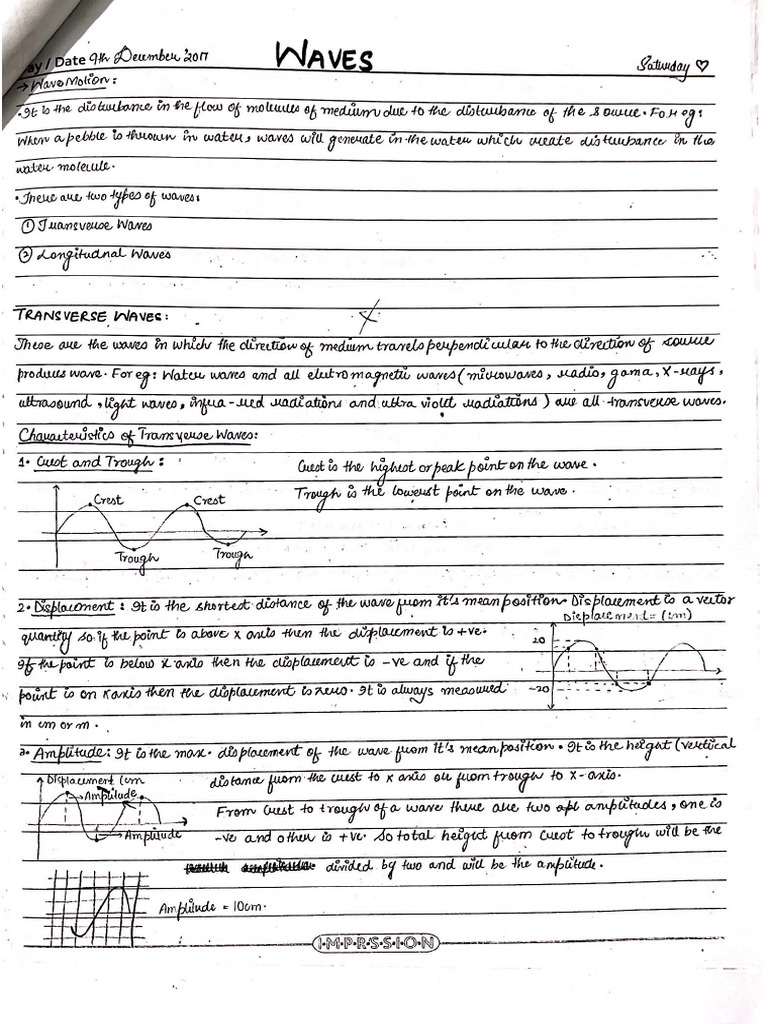 ay / Date 9th December '2017 WAVES Saturday ♡
→ Wave Motion :
• It is the disturbance in the flow of molecules of medium due to the disturbance of the source. For eg:
When a pebble is thrown in water, waves will generate in the water which create disturbance in the
water molecule.
• There are two types of waves:
① Transverse Waves
② Longitudnal Waves
TRANSVERSE WAVES:
These are the waves in which the direction of medium travels perpendicular to the direction of source
produces wave. For eg: Water waves and all eletromagnetic waves (microwaves, radio, gama, X-rays,
ultrasound, light waves, infra-red radiations and ultra violet radiations) are all transverse waves.
Characteristics of Transverse Waves:
1. Crest and Trough :
Crest is the highest or peak point on the wave.
Trough is the lowest point on the wave.
Crest
Crest
Trough
Trough
2. Displacment : It is the shortest distance of the wave from it's mean position. Displacement is a vector
quantity so if the point is above x axis then the displacement is +ve.
If the point is below x axis then the displacement is -ve and if the
point is on x axis then the displacement is zero. It is always measured
in cm or m.
Displacement = (cm)
20
-20
3. Amplitude: It is the max. displacement of the wave from it's mean position. It is the height (vertical
distance from the crest to x axis or from trough to x-axis.
From crest to trough of a wave there are two amplitudes, one is
-ve and other is +ve. So total height from crest to trough will be the
divided by two and will be the amplitude.
Displacement (cm
Amplitude
Amplitude
Amplitude = 10cm.
I·M·P·R·S·S·I·O·N